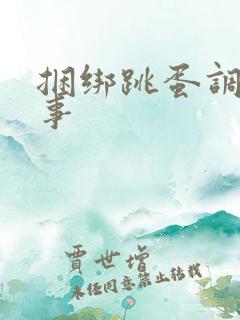 捆绑跳蛋調
事
贾世增
未经同意禁止转载